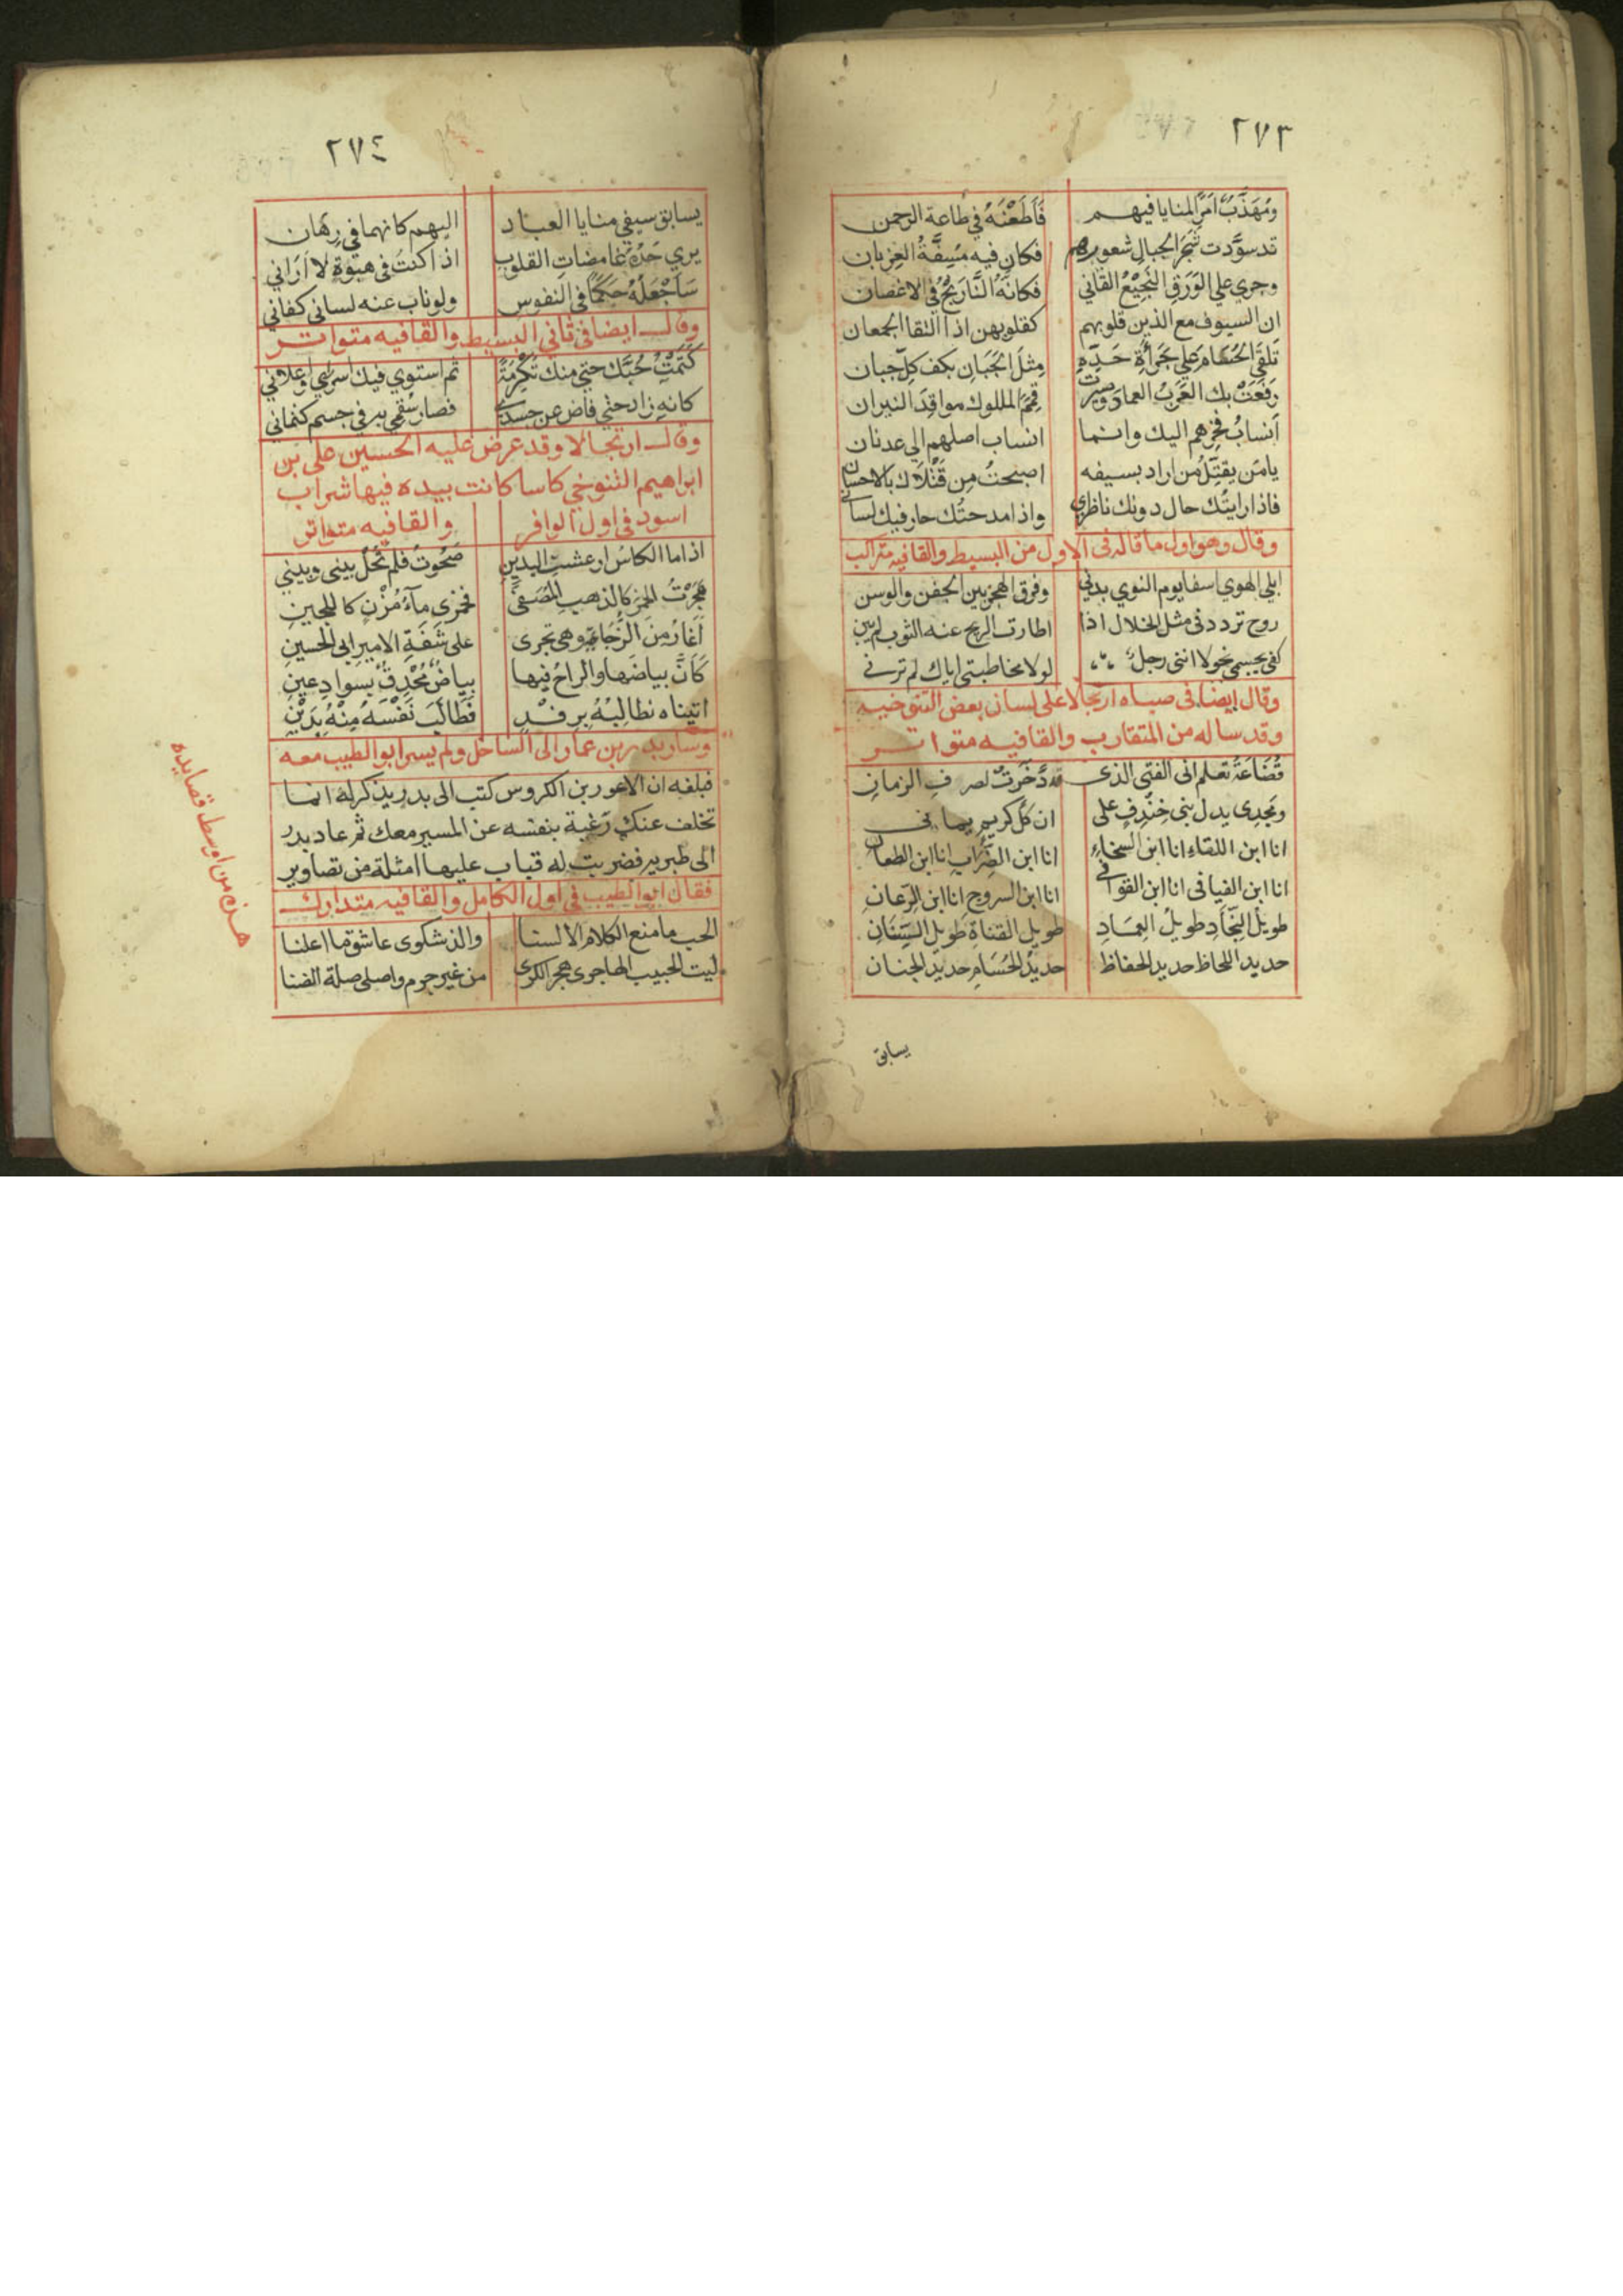 ٢٧٣
ومُهَذَّبٌ امَرَ المنايا فيهم فَاَطَعْنَهُ في طاعة الرحمن
قد سوَّدت شَجَرَ الجبالِ شعورهم فكان فيه مُسِفَّةُ الغِربان
وجرى على الوَرَقِ النَجِيْعُ القاني فكانَّهُ النَّارَنْجُ في الاغصان
ان السيوف مع الذين قلوبهم كقلوبهن اذا التقا الجمعان
تَلقَى الحُسَامَ على جَرأةِ حَدِّهِ مِثلَ الجَبَانِ بكف كلِّ جبان
رَفَعَتْ بك العَرَبُ العماد وصيرت قِمَمَ الملوك مواقِدَ النيران
اَنسابُ فخرِهم اليك وانما انساب اصلهم الى عدنان
يامَن يقتِّلُ مَن اراد بسيفه اصبحتُ مِن قَتْلاَك بالاحسان
فاذا رايتُك حال دونك ناظري واذا مدحتُك حار فيك لساني
وقال وهو اول ما قاله في الاول من البسيط والقافيه متراكب
ابلى الهوي اسفا يوم النوي بدني وفرق الهجر بين الجفن والوسن
روح تردد في مثل الخلال اذا اطارت الريح عنه الثوب لم يبن
كفى بجسمي نحولا انني رجل لولا مخاطبتي اياك لم ترني
وقال ايضا في صباه ارتجالا على لسان بعض التنوخيه
وقد ساله من المتقارب والقافيه متواتر
قُضَاعَةُ تعلم انى الفتى الذى ادَّخَرتْ لصرفِ الزمانِ
ومَجدِى يدل بنى خِندِفٍ على ان كلَّ كريمٍ يمانى
انا ابن اللقاءِ انا ابن السخاءِ انا ابن الضِّرَابِ انا ابن الطعان
انا ابن الفيافى انا ابن القوافى انا ابن السروج انا ابن الرِّعانِ
طويلُ النِّجَادِ طويلُ العِمَادِ طويل القناةِ طويل السِّنَانِ
حديد اللحاظ حديد الحفاظ حديدُ الحُسَامِ حديدُ الجنان
يسابق
٢٧٤
يسابق سيفى منايا العباد اليهم كانهما في رِهَان
يري حَدُّهُ غامضاتِ القلوب اذا كنتُ فى هبوةٍ لا اَرَاني
سَاَجْعَلُهُ حَكَمًا فى النفوس ولو ناب عنه لسانى كفاني
وقال ايضا فى ثاني البسيط والقافيه متواتر
كَتَمْتُ حُبَّك حتى منك تَكْرِمَةً ثم استوي فيك اسراري واعلاني
كانه زاد حتى فاض عن جسدي فصار سُقمي به في جسم كتماني
وقال ارتجالا وقد عرض عليه الحسين على بن
ابراهيم التنوخي كاسا كانت بيده فيها شراب
اسود فى اول الوافر والقافيه متواتر
اذا ما الكاسُ ارعشت اليدينِ صَحُوتُ فلم تَحُلْ بينى وبيني
هَجَرْتُ الخمرَ كالذهب المُصَفَّى فخمرى مآءُ مُزْنٍ كاللجينِ
اَغَارُ مِنَ الزُجَاجَةِ وهى تجرى على شَفَةِ الامير ابى الحسينِ
كَاَنَّ بياضَها والراحُ فيها بياضٌ مُحْدِقٌ بسَوادِ عينِ
اتيناه نطالِبُهُ برِفْدٍ فطَالَبَ نَفْسَهُ مِنْهُ بِدَيْنِ
وسار بدر بن عمار الى الساحل ولم يسر ابو الطيب معه
فبلغه ان الاعور بن الكروس كتب الى بدر يذكر له انما
تخلف عنك رغبة بنفسه عن المسير معك ثم عاد بدر
الى طبريه فضربت له قباب عليها امثلة من تصاوير
فقال ابو الطيب فى اول الكامل والقافيه متدارك
الحب ما منع الكلام الالسنا والذ شكوى عاشق ما اعلنا
ليت الحبيب الهاجرى هجر الكرى من غير جرم واصلى صلة الضنا
هذه من اوسط قصايده